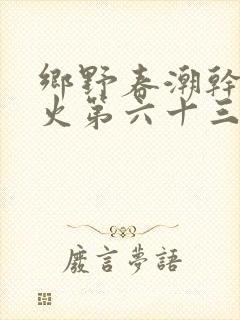 鄉野春潮幹
火第六十三
廢言夢語